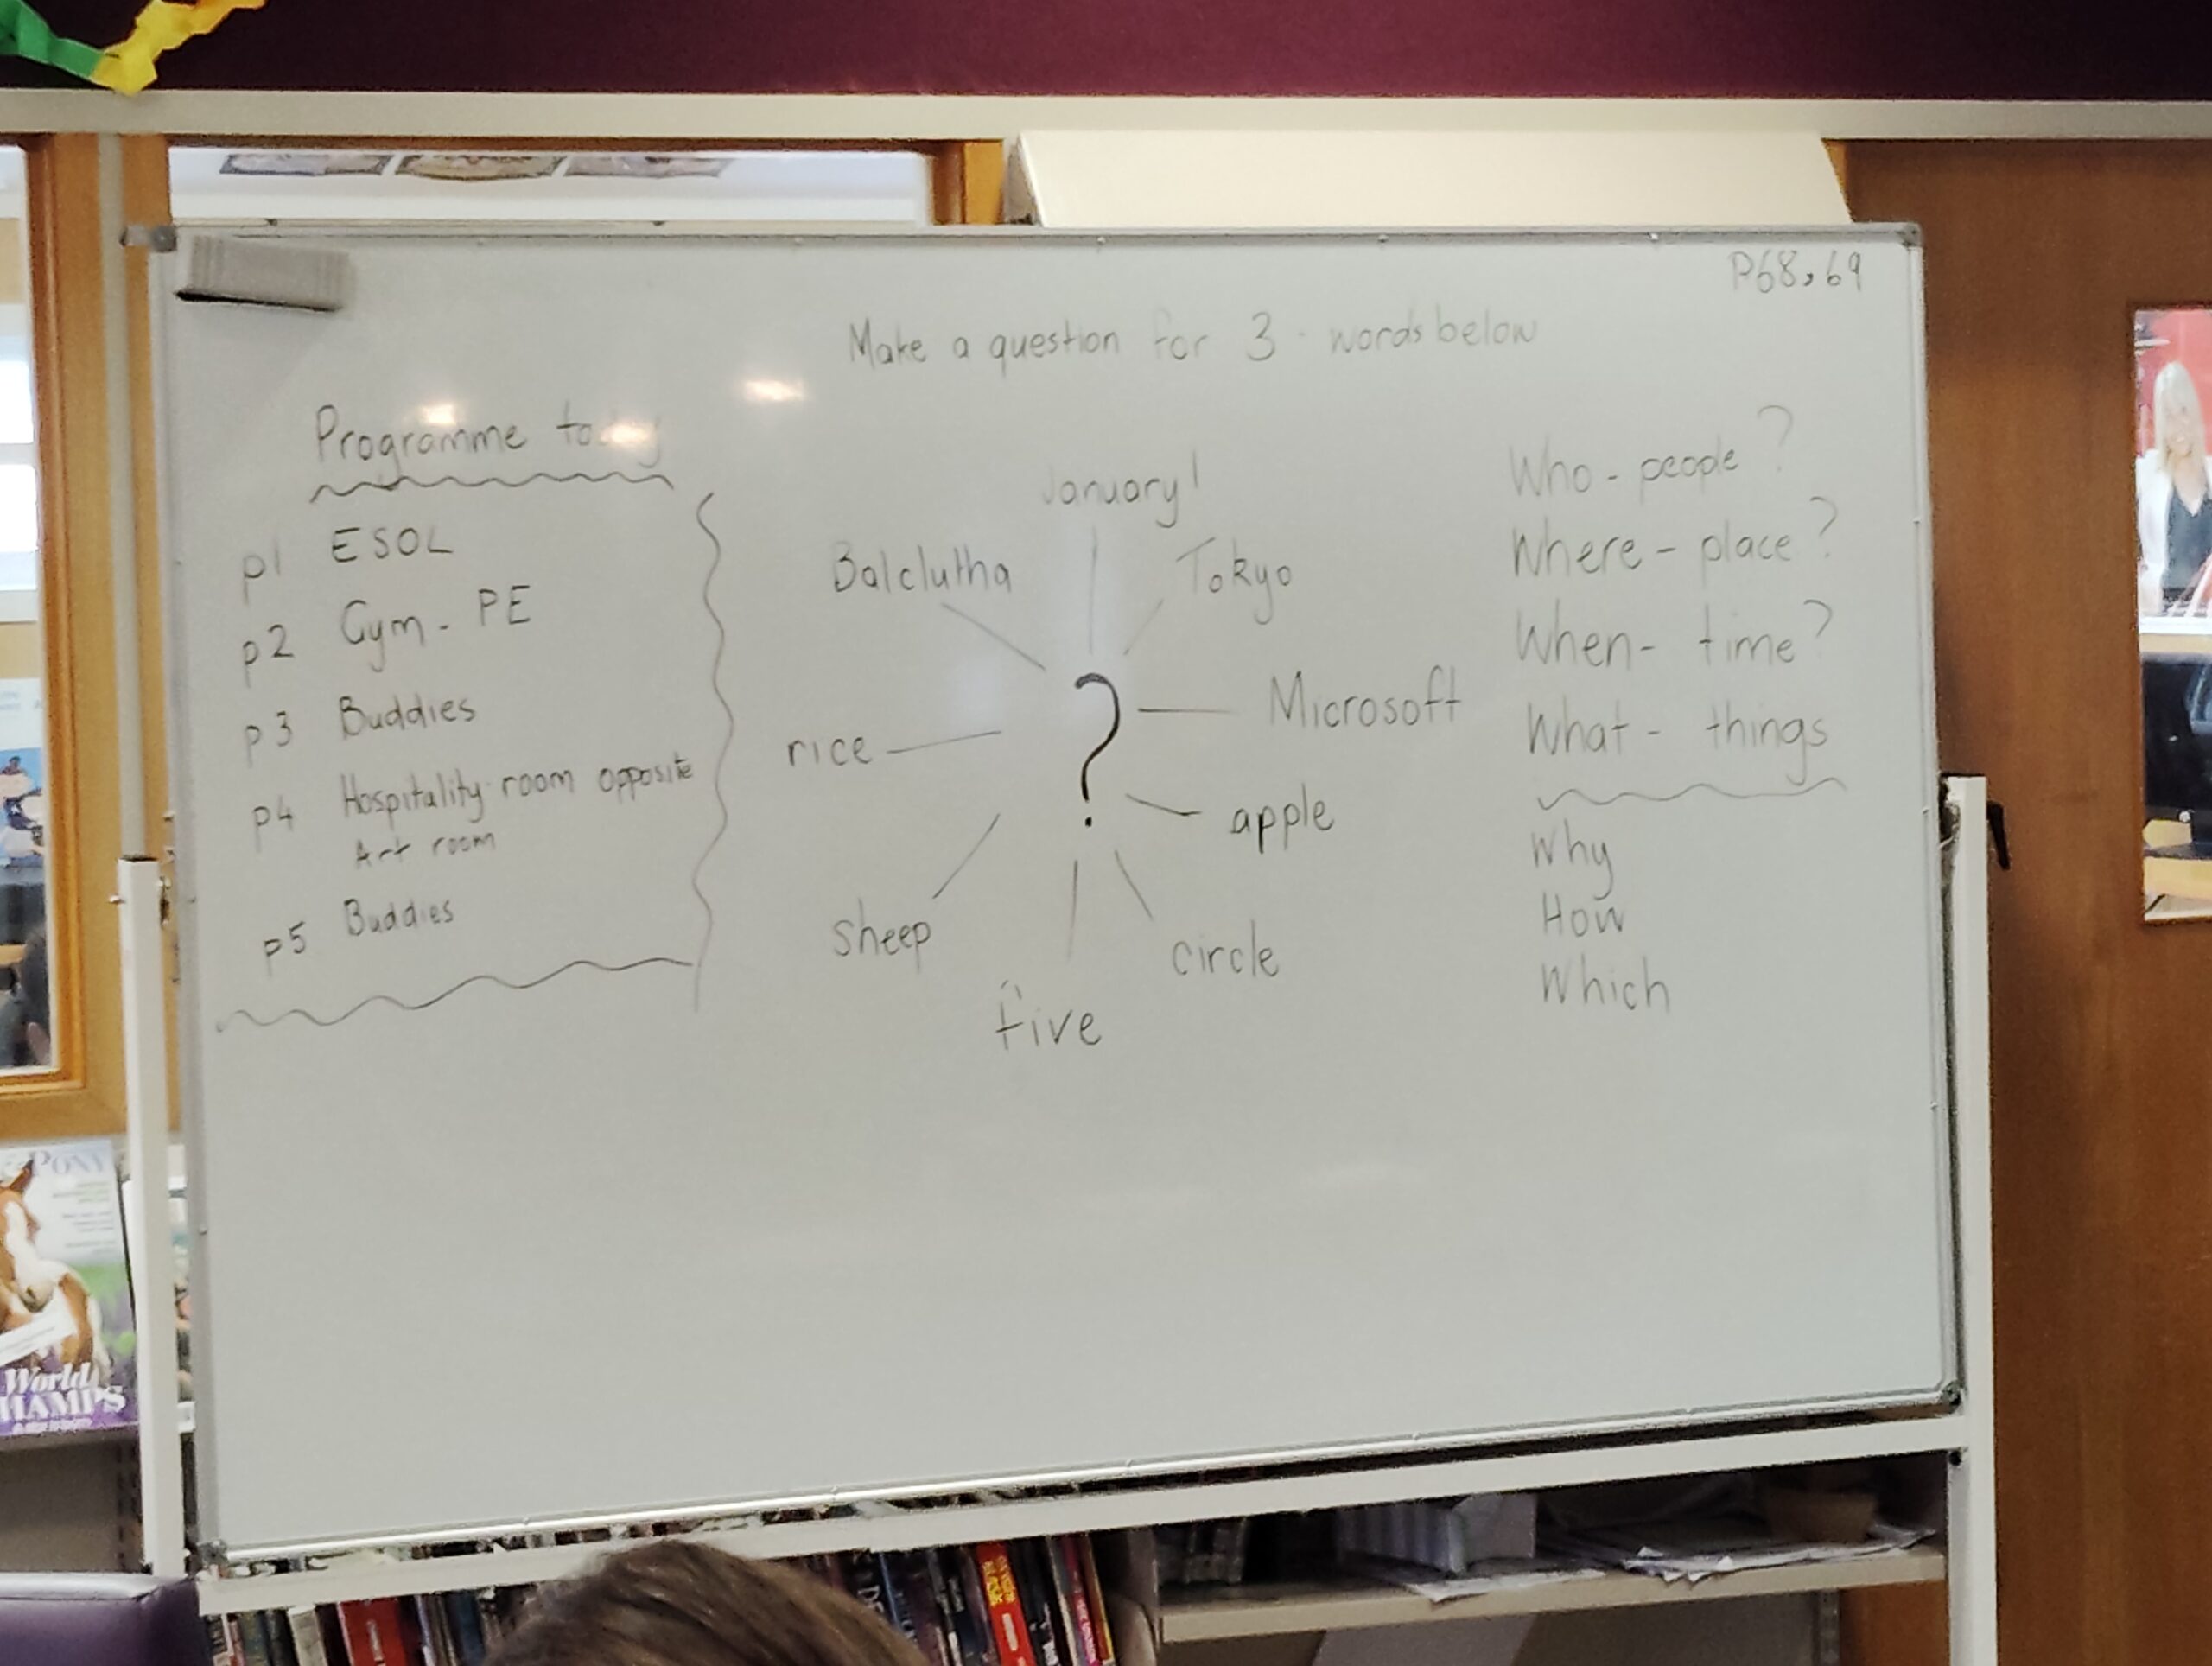 P68,69
Make a question for 3 words below
Programme today
p1 ESOL
p2 Gym - PE
p3 Buddies
p4 Hospitality room opposite
Art room
p5 Buddies
January!
Balclutha
Tokyo
Microsoft
rice
apple
sheep
circle
five
?
Who - people?
Where - place?
When - time?
What - things
Why
How
Which
PONY
World